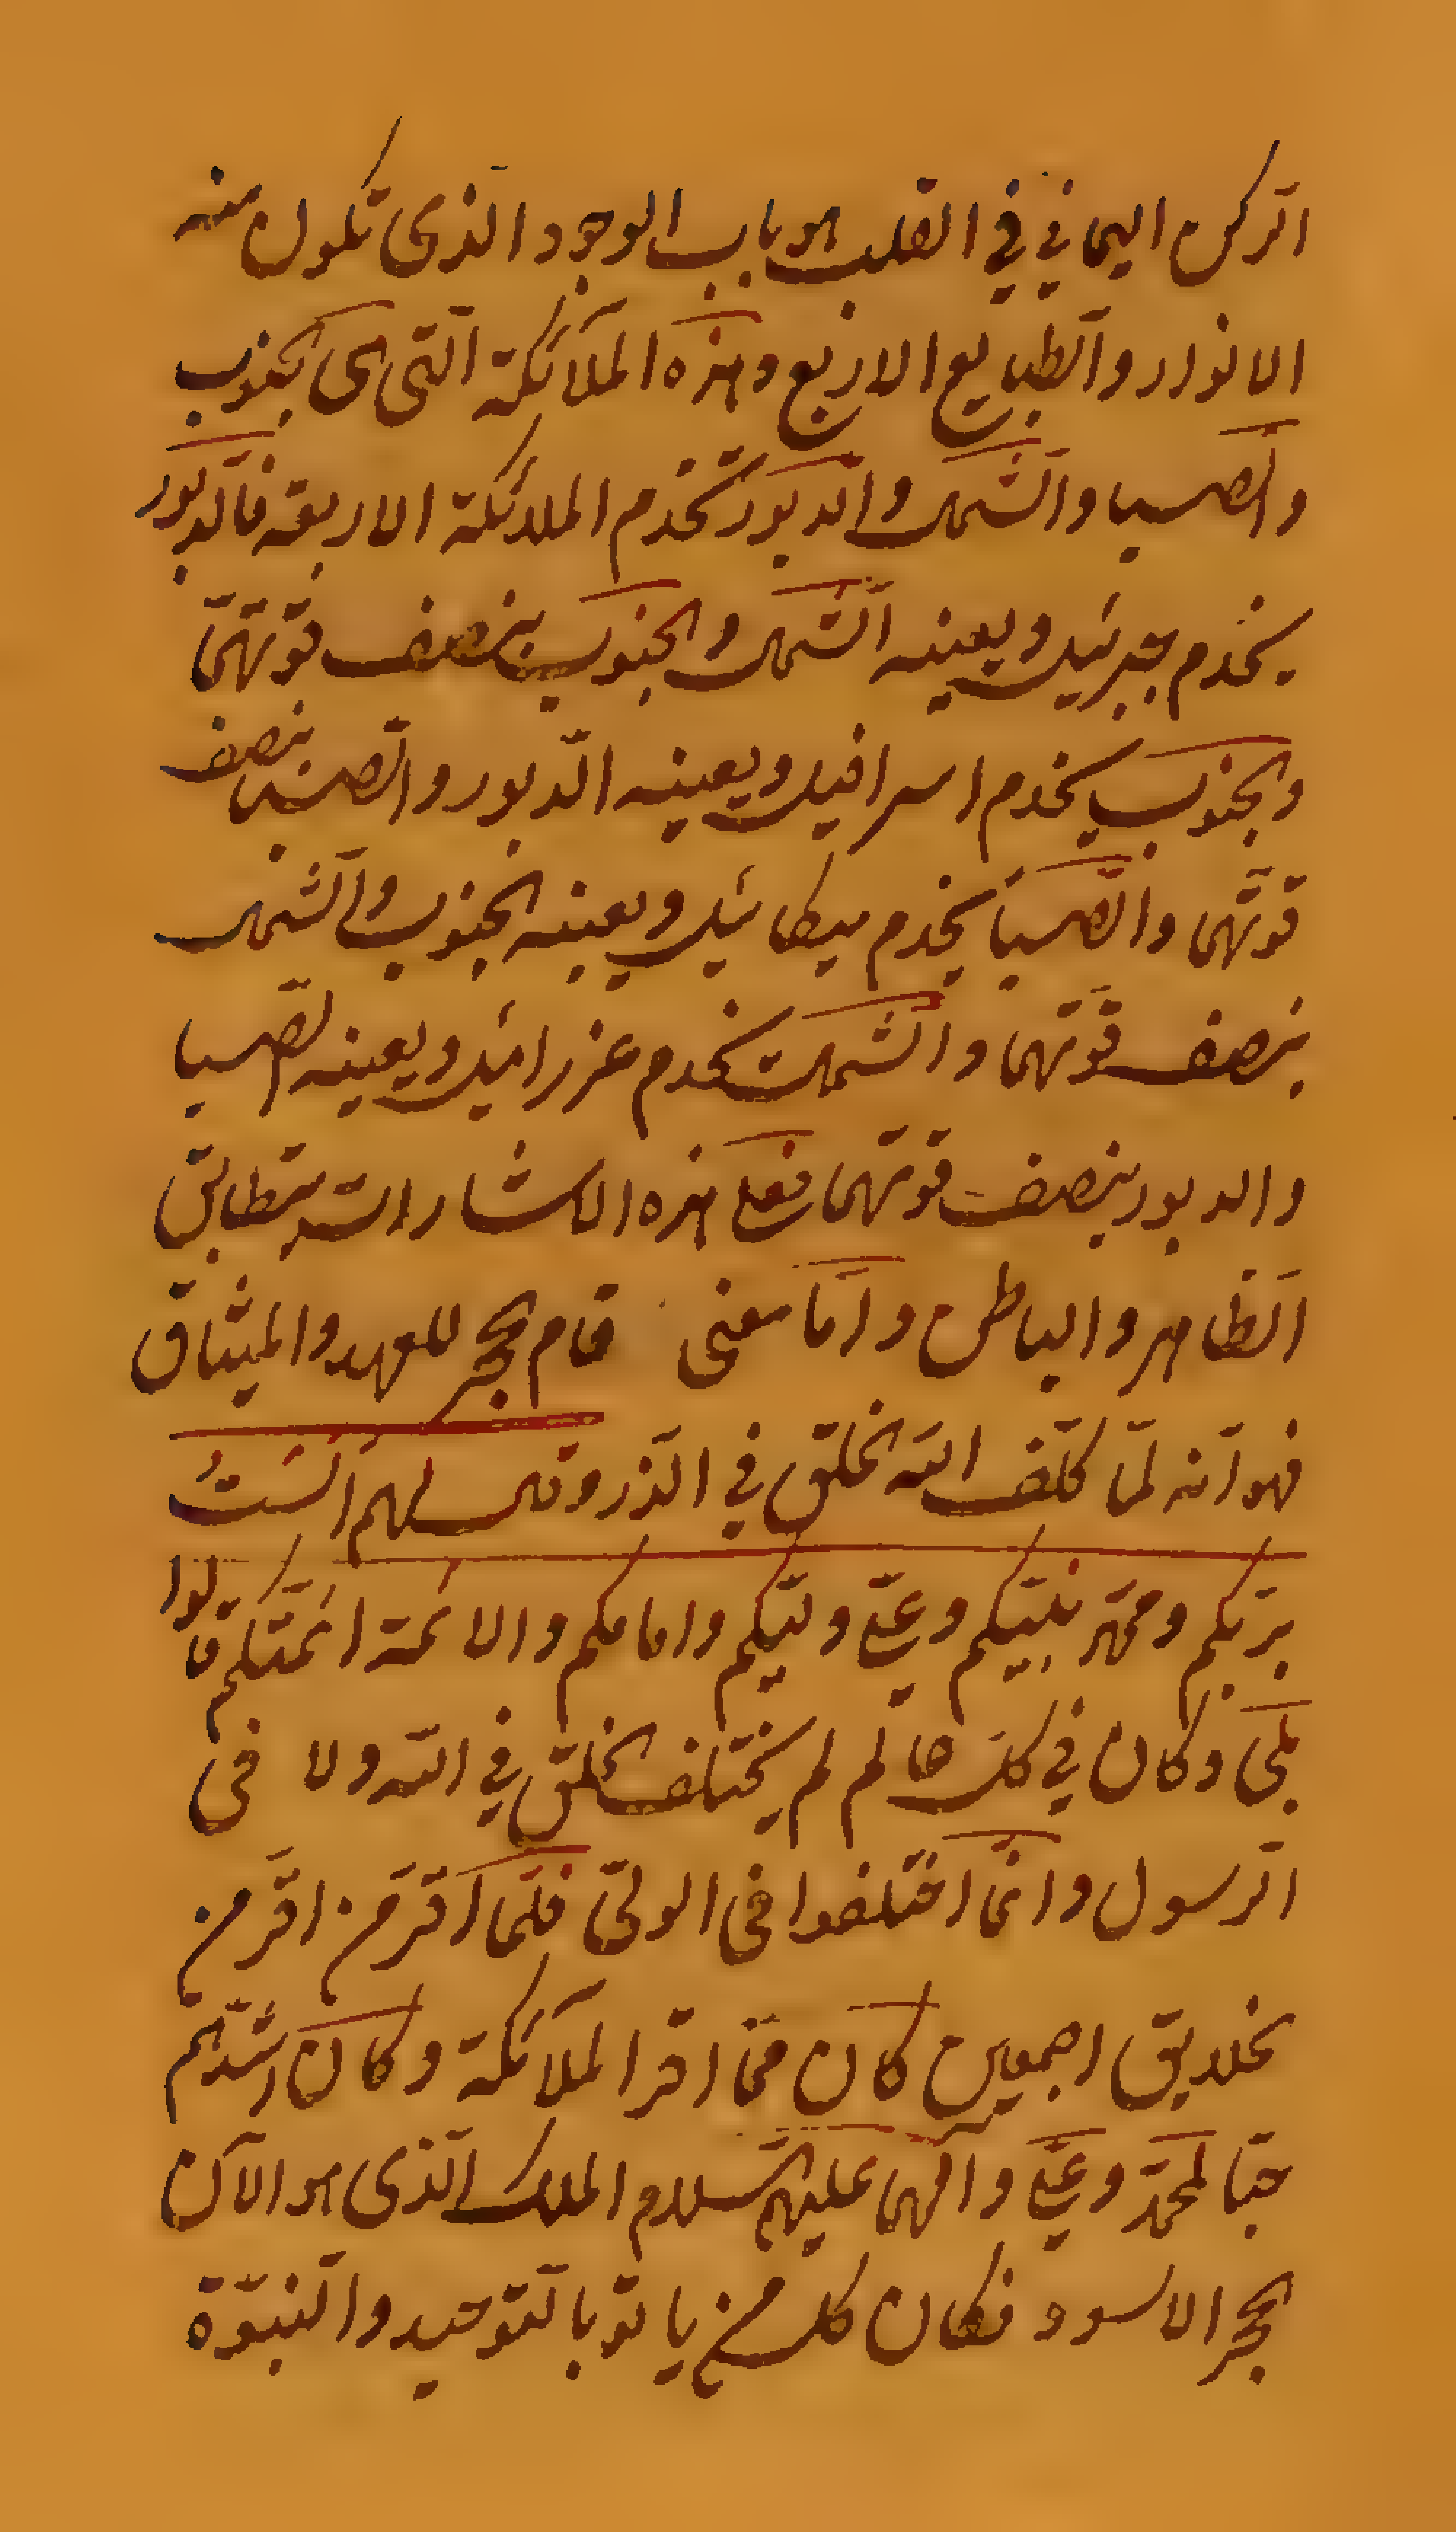 الركن اليماني في القلب هو باب الوجود الذي تكون منه
الانوار والطبايع الاربع وهذه الملائكة التي هى الجنوب
والصبا والشمال والدبور تخدم الملائكة الاربعة فالدبور
يخدم جبرئيل ويعينه الشمال والجنوب بنصف قوّتهما
والجنوب يخدم اسرافيل ويعينه الدّبور والصبا بنصف
قوتهما والصبا يخدم ميكائيل ويعينه الجنوب والشمال
بنصف قوتهما والشمال تخدم عزرائيل ويعينه الصبا
والدبور بنصف قوتهما فعلى هذه الاشارات يتطابق
الظاهر والباطن وامّا معنى قام الحجر للعهد والميثاق
فهو انه لمّا كلّف الله الخلق في الذر وقال لهم الستُ
بربّكم ومحمّد نبيّكم وعلىّ وليّكم وامامكم والائمة ائمّتكم قالوا
بلى وكان في كل عالم لم يختلف الخلق في الله ولا فى
الرسول وانّما اختلفوا فى الولىّ فلمّا اقرّ من اقرّ من
الخلايق اجمعين كان ممّن اقر الملائكة وكان اشدّهم
حبّا لمحمّد وعلىّ والهما عليهم السلام الملك الذى هو الآن
الحجر الاسود فكان كل من ياتو بالتوحيد والنبوّة